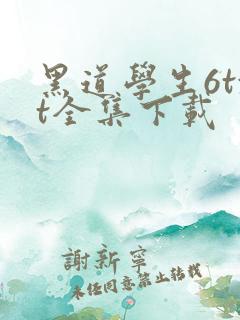 黑道學生6tx
t全集下載
謝新寧
未任同意禁止转载